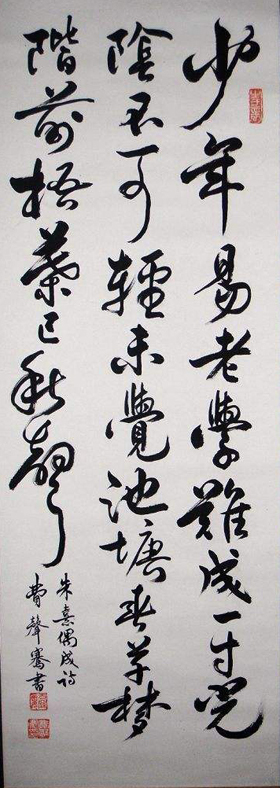 少年易老學難成一寸光
陰不可輕未覺池塘春草夢
階前梧葉已秋聲
朱熹偶成詩
費聲騫書